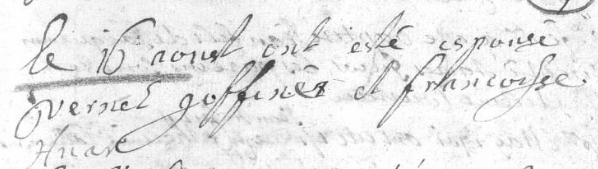 le 16 aoust ont esté espousé
Wernet goffinet et francoisse
Huart